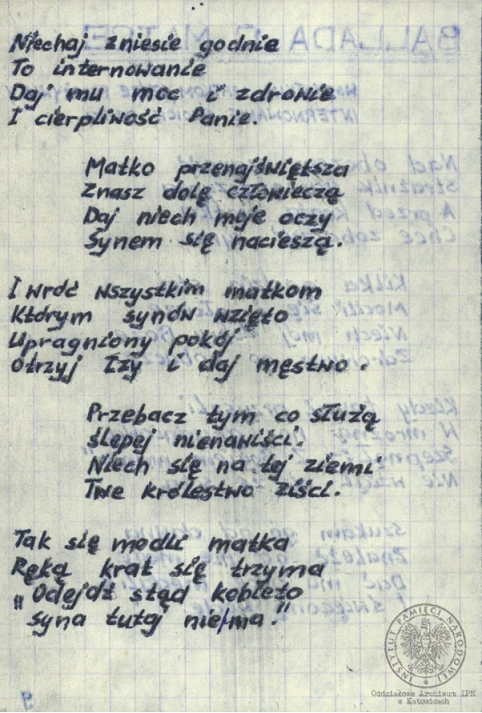 Niechaj zniesie godnie
To internowanie
Daj mu moc i zdrowie
I cierpliwość Panie.
Matko przenajświętsza
Znasz dolę człowieczą
Daj niech moje oczy
Synem się nacieszą.
I wróć wszystkim matkom
Którym synów wzięto
Upragniony pokój
Otrzyj łzy i daj męstwo.
Przebacz tym co służą
ślepej nienawiści.
Niech się na tej ziemi
Twe królestwo ziści.
Tak się modli matka
Ręką krat się trzyma
"Odejdź stąd kobieto
syna tutaj nie/ma."
INSTYTUT PAMIĘCI NARODOWEJ
Oddziałowe Archiwum IPN
w Katowicach